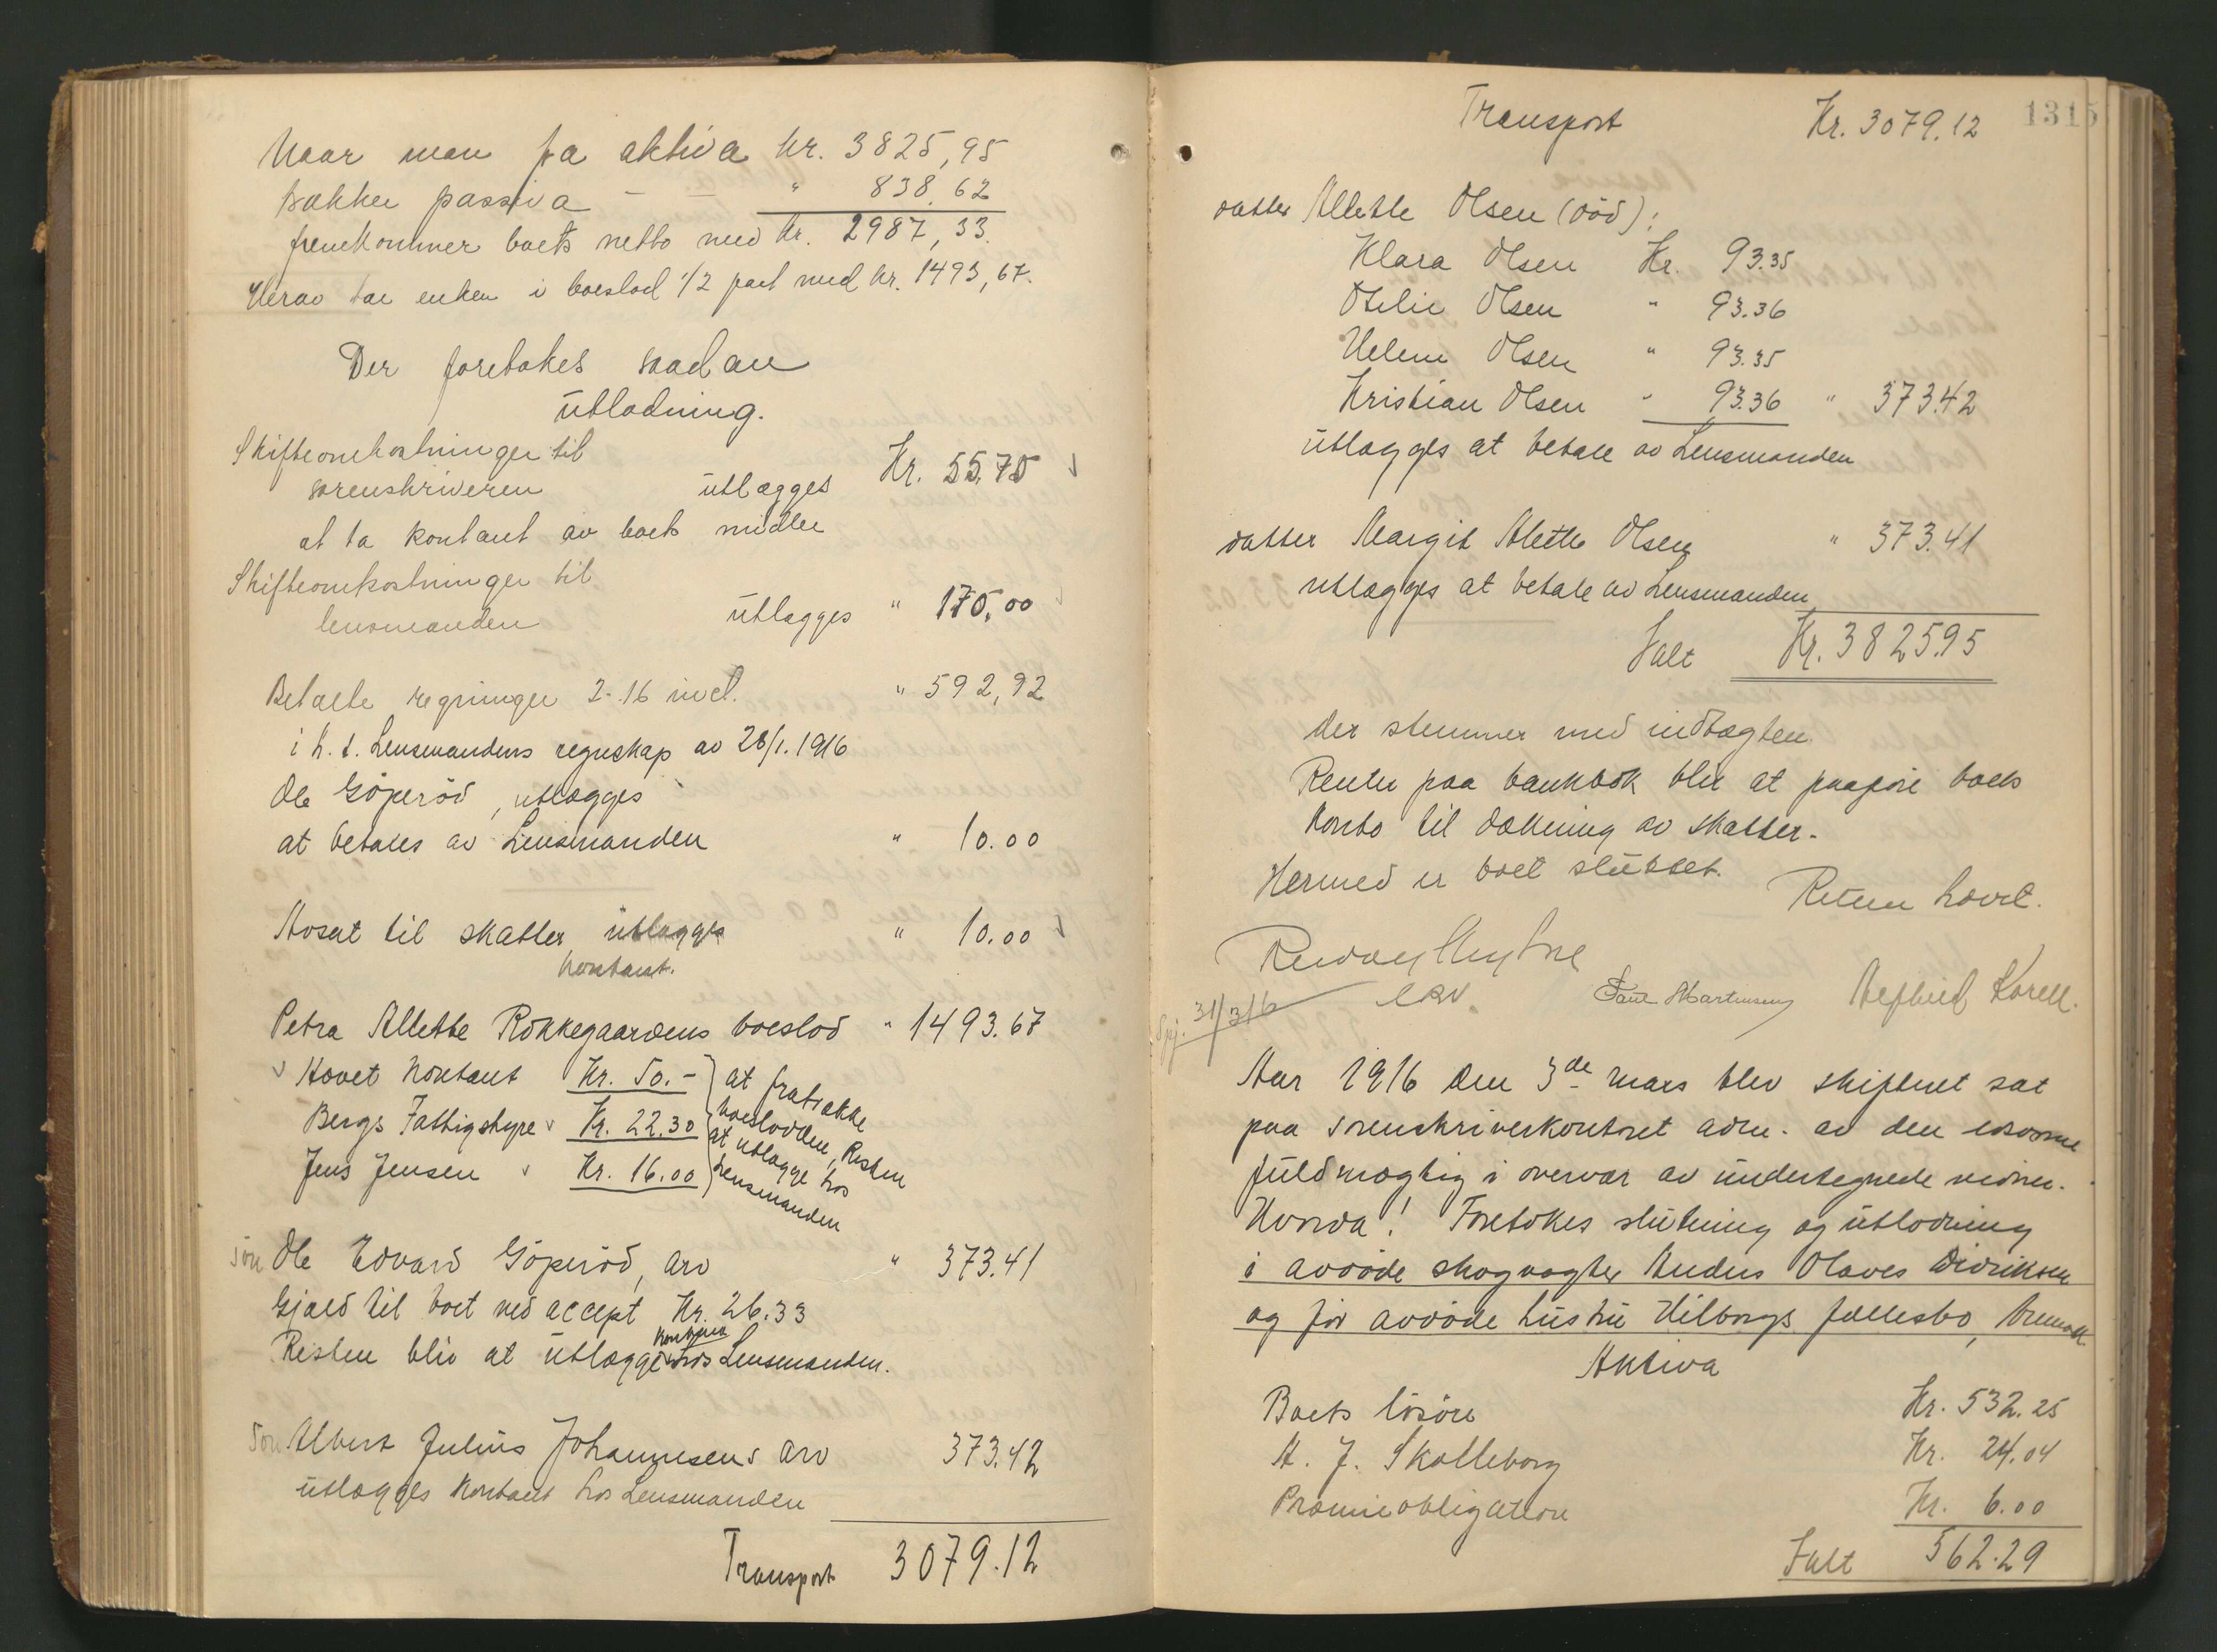 Naar man fra aktiva kr. 3825,95
trækker passiva — — " 838.62
fremkommer boets netto med kr. 2987,33.
Herav tar enken i boeslod 1/2 part med kr. 1493,67.
Der foretokes saadan
utlodning.
Skifteomkostninger til
sorenskriveren utlægges Kr. 55.75
at ta kontant av boets midler
Skifteomkostninger til
lensmanden utlægges " 170,00
Betalte regninger 2-16 incl. " 592,92
i h. t. Lensmandens regnskap av 28/1. 1916
Ole Göperöd, utlægges
at betales av Lensmanden " 10.00
Avsat til skatter utlægges " 10.00
kontant.
Petra Allette Rökkegaardens boeslod " 1493.67
Hævet kontant Kr. 50.- } at fratrække
Bergs Fattigstyre Kr. 22.30 boeslodden, Resten
Jens Jensen Kr. 16.00 at utlægge hos
Lensmanden
sön Ole Edvard Göperöd, arv " 373.41
Gjæld til boet ved accept Kr. 26.33
kontant
Resten bliv at utlægge hos Lensmanden.
Sön Albert Julius Johannesens arv 373.42
utlægges kontant hos Lensmanden
Transport 3079.12
1315
Transport Kr. 3079.12
datter Allette Olsen (död):
Klara Olsen Kr. 93.35
Otilie Olsen " 93.36
Helene Olsen " 93.35
Kristian Olsen " 93.36 " 373.42
utlægges at betale av Lensmanden
datter Margit Alette Olsen " 373.41
utlægges at betale av Lensmanden
Ialt Kr. 3825.95
der stemmer med indtægten.
Renter paa bankbok blir at paaföre boets
konto til dækning av skatter.
Hermed er boet sluttet.
Retten hævet.
Paul Martinsen
31/3 16
Aar 1916 den 3de mars blev skifteret sat
paa sorenskriverkontoret adm. av den edsvorne
fuldmægtig i overvær av undertegnede vidner.
Hvorda! Foretokes slutning og utlodning
i avdöde skogvogter Anders Olaves Didriksen
og för avdöde hustru Hilborgs fællesbo,
Aktiva
Boets lösöre Kr. 532.25
A. J. Skolleborg Kr. 24.04
Præmieobligation Kr. 6.00
Ialt 562.29